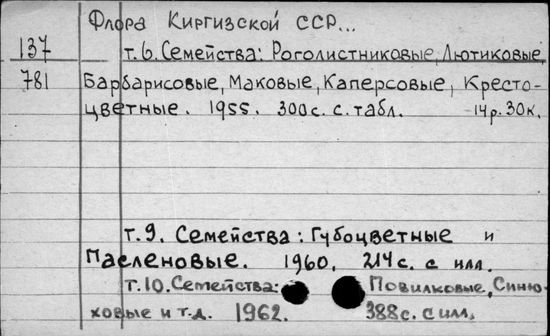 Флора Киргизской ССР...
137 т.6. Семейства: Роголистниковые, Лютиковые,
781 Барбарисовые, Маковые, Каперсовые, Кресто-
цветные. 1955. 300с. с табл. 14р.30к.
т.9. Семейства: Губоцветные и
Пасленовые. 1960. 214с. с илл.
т.10. Семейства: Повилковые, Синю-
ховые и т.д. 1962. 388с. с илл.